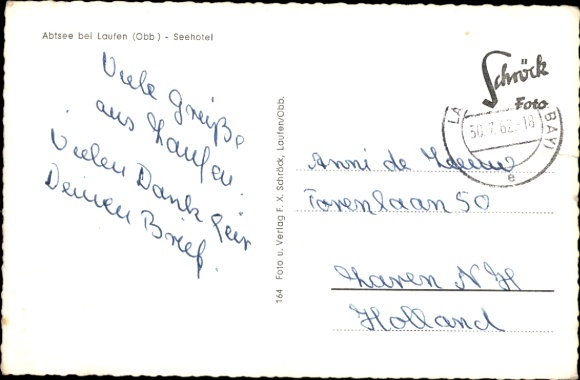 Abtsee bei Laufen (Obb) - Seehotel
Viele Grüße
aus Laufen.
Vielen Dank für
Deinen Brief.
164 Foto u. Verlag F. X. Schröck, Laufen/Obb.
Schröck
Foto
LA BAY)
30.7.62.-18
e
Anni de Leeuw
Torenlaan 50
Laren N H
Holland